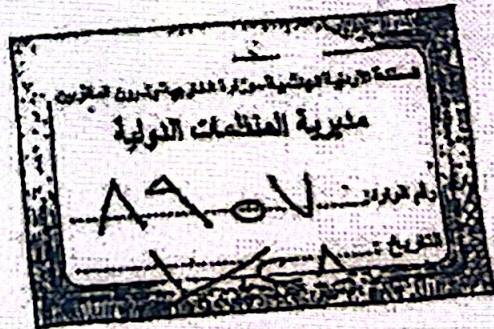 المملكة الأردنية الهاشمية - وزارة الخارجية وشؤون المغتربين
مديرية المنظمات الدولية
رقم الوارد: ٨٩٥٧
التاريخ: